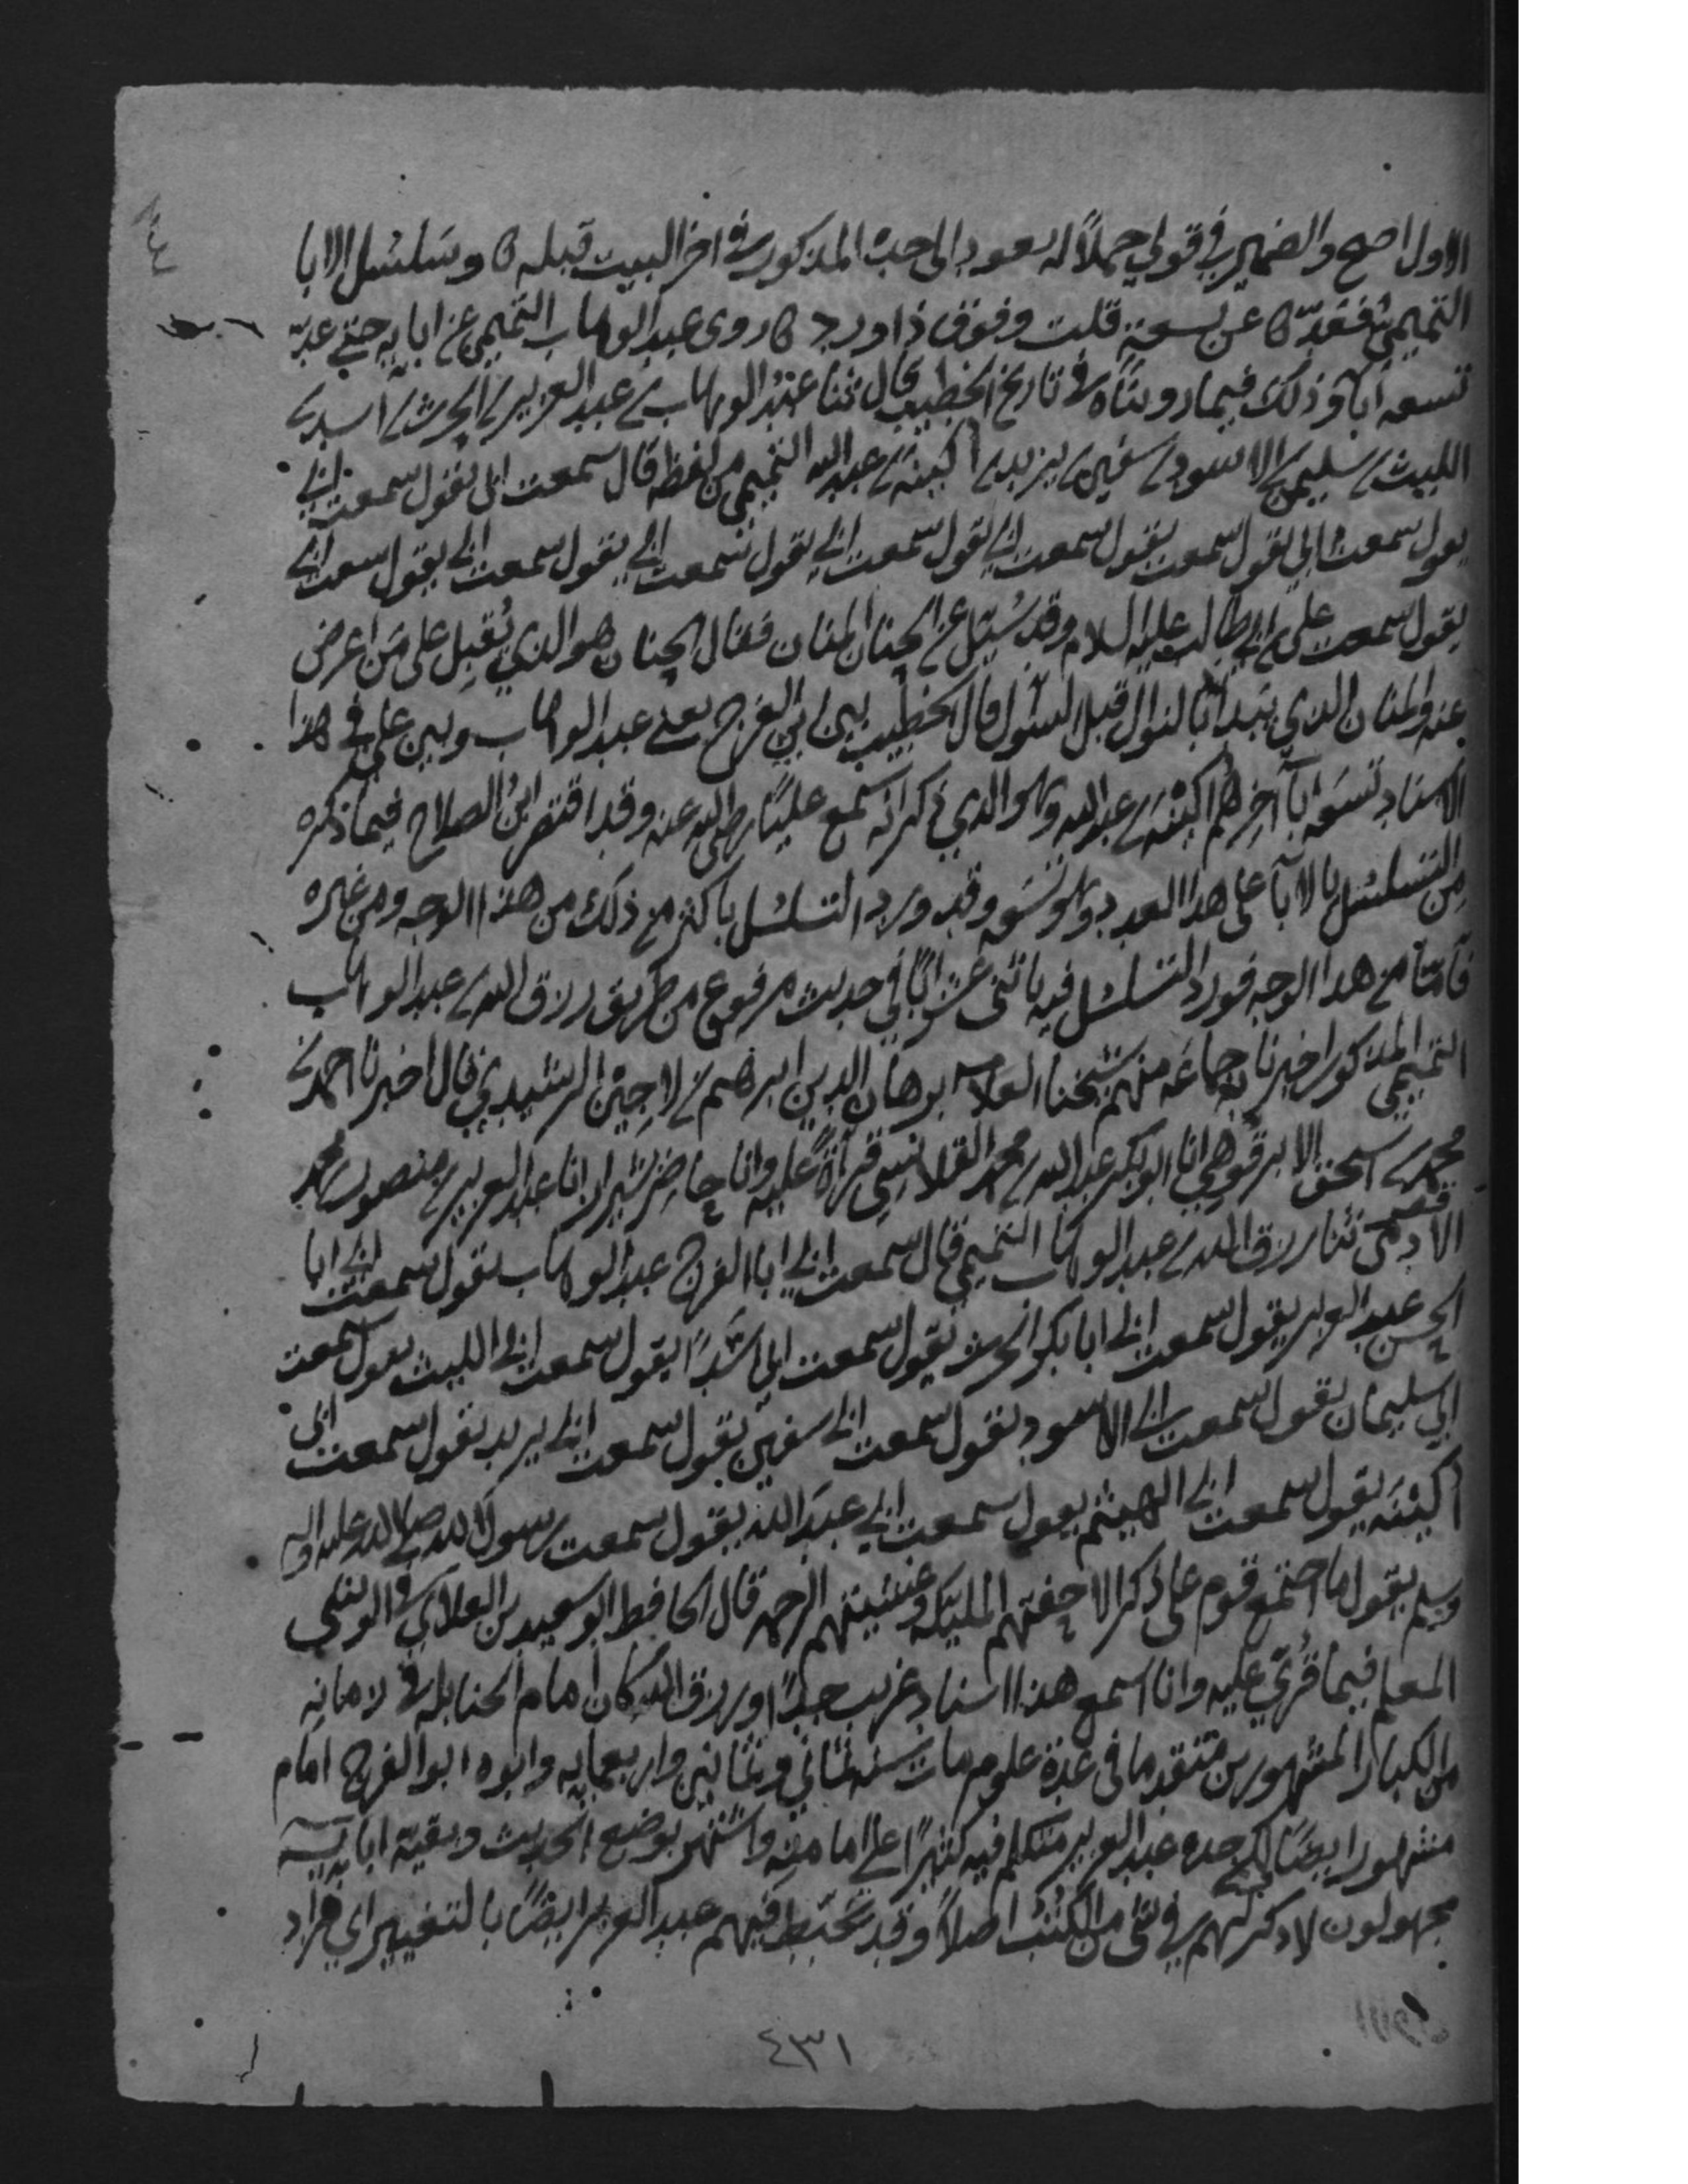 الاول اصح والضمير في قولي حملاً له يعود الى جده المذكور في اخر البيت قبله ۞ وسلسل الابا
التميمي فعدّ ۞ عن تسعة قلت وفوق ذا ورد ۞ روى عبد الوهاب التميمي عن ابايه حتى عدّ
تسعه آبا وذلك فيما رويناه في تاريخ الخطيب قال ثنا عبد الوهاب بن عبد العزيز بن الحرث بن اسد بن
الليث بن سليمن بن الاسود بن سفين بن يزيد بن اكينه بن عبد الله التميمي من لفظه قال سمعت ابي يقول سمعت ابي
يقول سمعت ابي يقول سمعت يقول سمعت ابي يقول سمعت ابي يقول سمعت ابي يقول سمعت ابي يقول سمعت ابي
يقول سمعت علي بن ابي طالب عليه السلام وقد سُئل عن الحنان المنان فقال الحنان هو الذي يُقبل على مَن اعرض
عنه والمنان الذي يبدأ بالنوال قبل السؤال قال الخطيب بين ابي الفرج يعني عبد الوهاب وبين علي في هذا
الاسناد تسعه ابآ آخرهم اكينه بن عبد الله وهو الذي ذكر انه سمع عليًا رضي الله عنه وقد اقتصر ابن الصلاح فيما ذكره
من التسلسل بالابآ على هذا العدد وهو تسعه وقد ورد التسلسل باكثر من ذلك من هذا الوجه ومن غيره
فأما من هذا الوجه فورد التسلسل فيه باثنى عشر ابًا في حديث مرفوع من طريق رزق الله بن عبد الوهاب
التميمي المذكور اخبرنا به جماعه منهم شيخنا العلامه برهان الدين ابرهيم بن لاجين الرشيدي قال اخبرنا احمد بن
محمد بن اسحق الابرقوهي انا ابو بكر عبد الله بن محمد القلانسي قراءةً عليه وانا حاضر بشيراز انا عبد العزيز بن منصور بن محمد
الادمي ثنا رزق الله بن عبد الوهاب التميمي قال سمعت ابي ابا الفرج عبد الوهاب يقول سمعت ابي ابا
الحسن عبد العزيز يقول سمعت ابي ابا بكر الحرث يقول سمعت ابي اسَدًا يقول سمعت ابي الليث يقول سمعت
ابي سليمان يقول سمعت ابي الاسود يقول سمعت ابي سفين يقول سمعت ابي يزيد يقول سمعت ابي
اكينَه يقول سمعت ابي الهيثم يقول سمعت ابي عبدَ الله يقول سمعت رسول الله صلى الله عليه واله
وسلم يقول ما اجتمع قوم على ذكر الا حفتهم المليكه وغشيتهم الرحمه قال الحافظ ابو سعيد بن العلاي في الوشي
المعلم فيما قُرئ عليه وانا اسمع هذا اسناد غريب جدًا ورزق الله كان امام الحنابله في زمانه
من الكبار المشهورين متقدما في عدة علوم مات سنه ثماني وثمانين واربعمايه وابوه ابو الفرج امام
مشهور ايضًا لكن جده عبد العزيز متكلم فيه كثيرًا على امامته واشتهر بوضع الحديث وبقية ابايه
مجهولون لا ذكر لهم في شي من الكتب اصلاً وقد تخبط فيهم عبد العزيز ايضًا بالتغيير اي فزاد
٤٣١